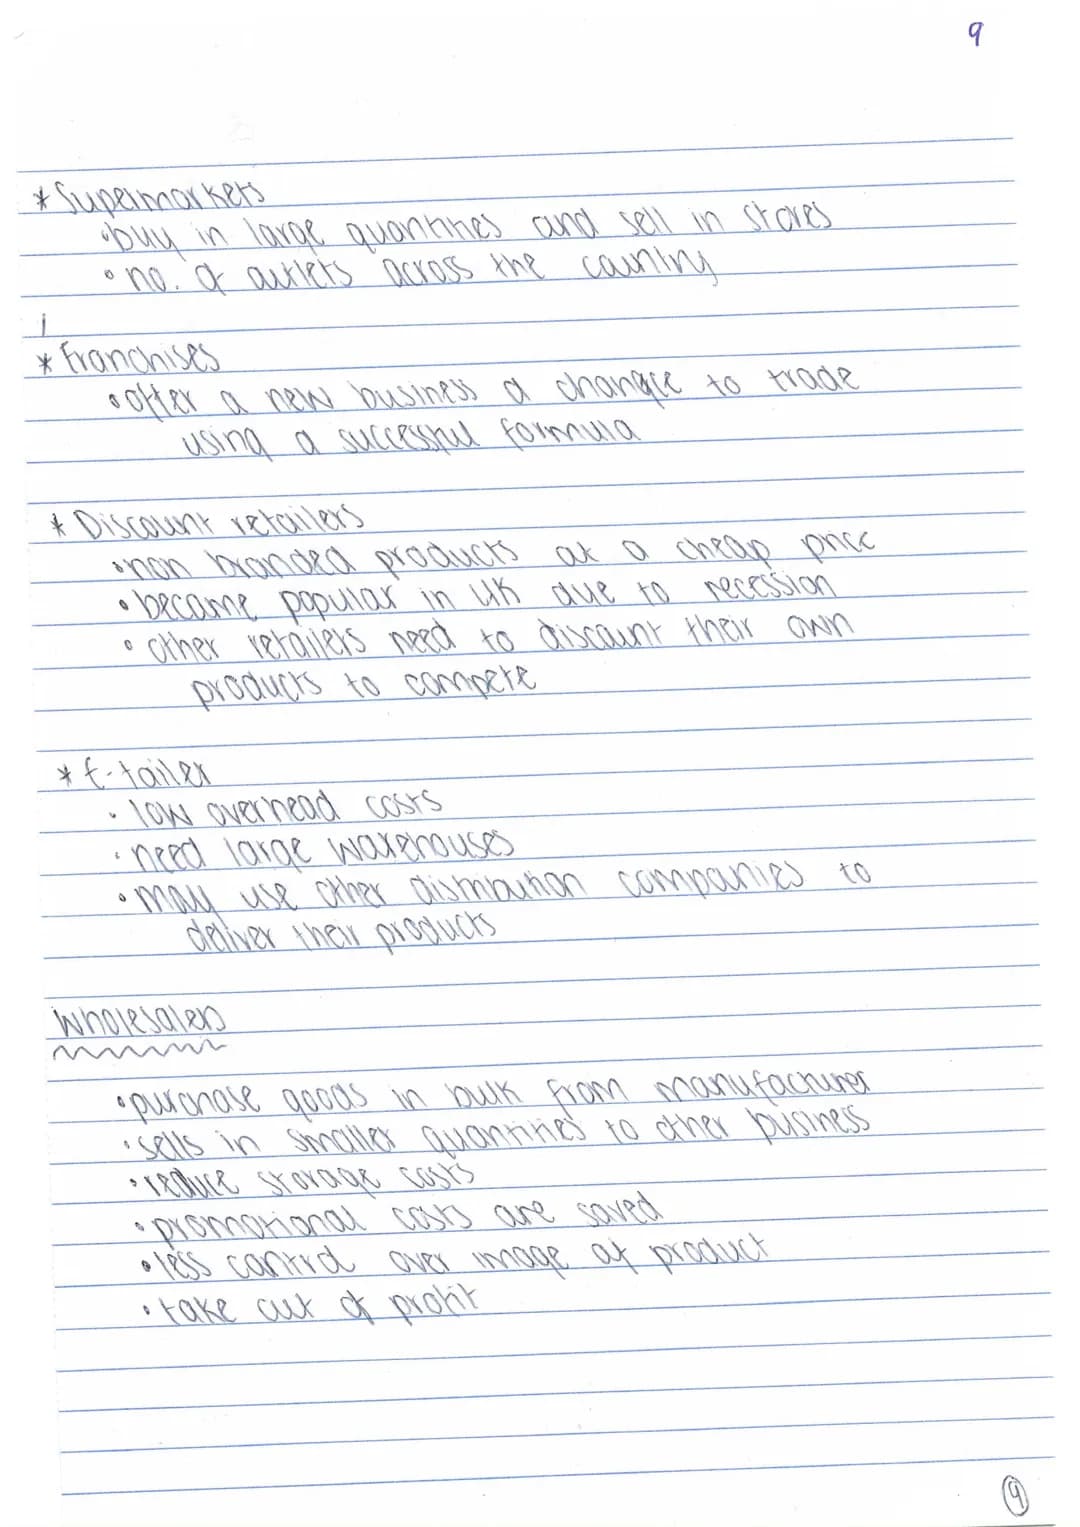 9
* Supermarkets
• buy in large quantities and sell in stores
• no. of outlets across the country
* Franchises
• offer a new business a change to trade
using a successful formula
* Discount retailers
• non branded products at a cheap price
• became popular in UK due to recession
• other retailers need to discount their own
products to compete
* E-tailer
• low overhead costs
• need large warehouses
• may use other distribution companies to
deliver their products
Wholesalers
• purchase goods in bulk from manufacturer
• sells in smaller quantities to other business
• reduce storage costs
• promotional costs are saved
• less control over image of product
• take cut of profit
9